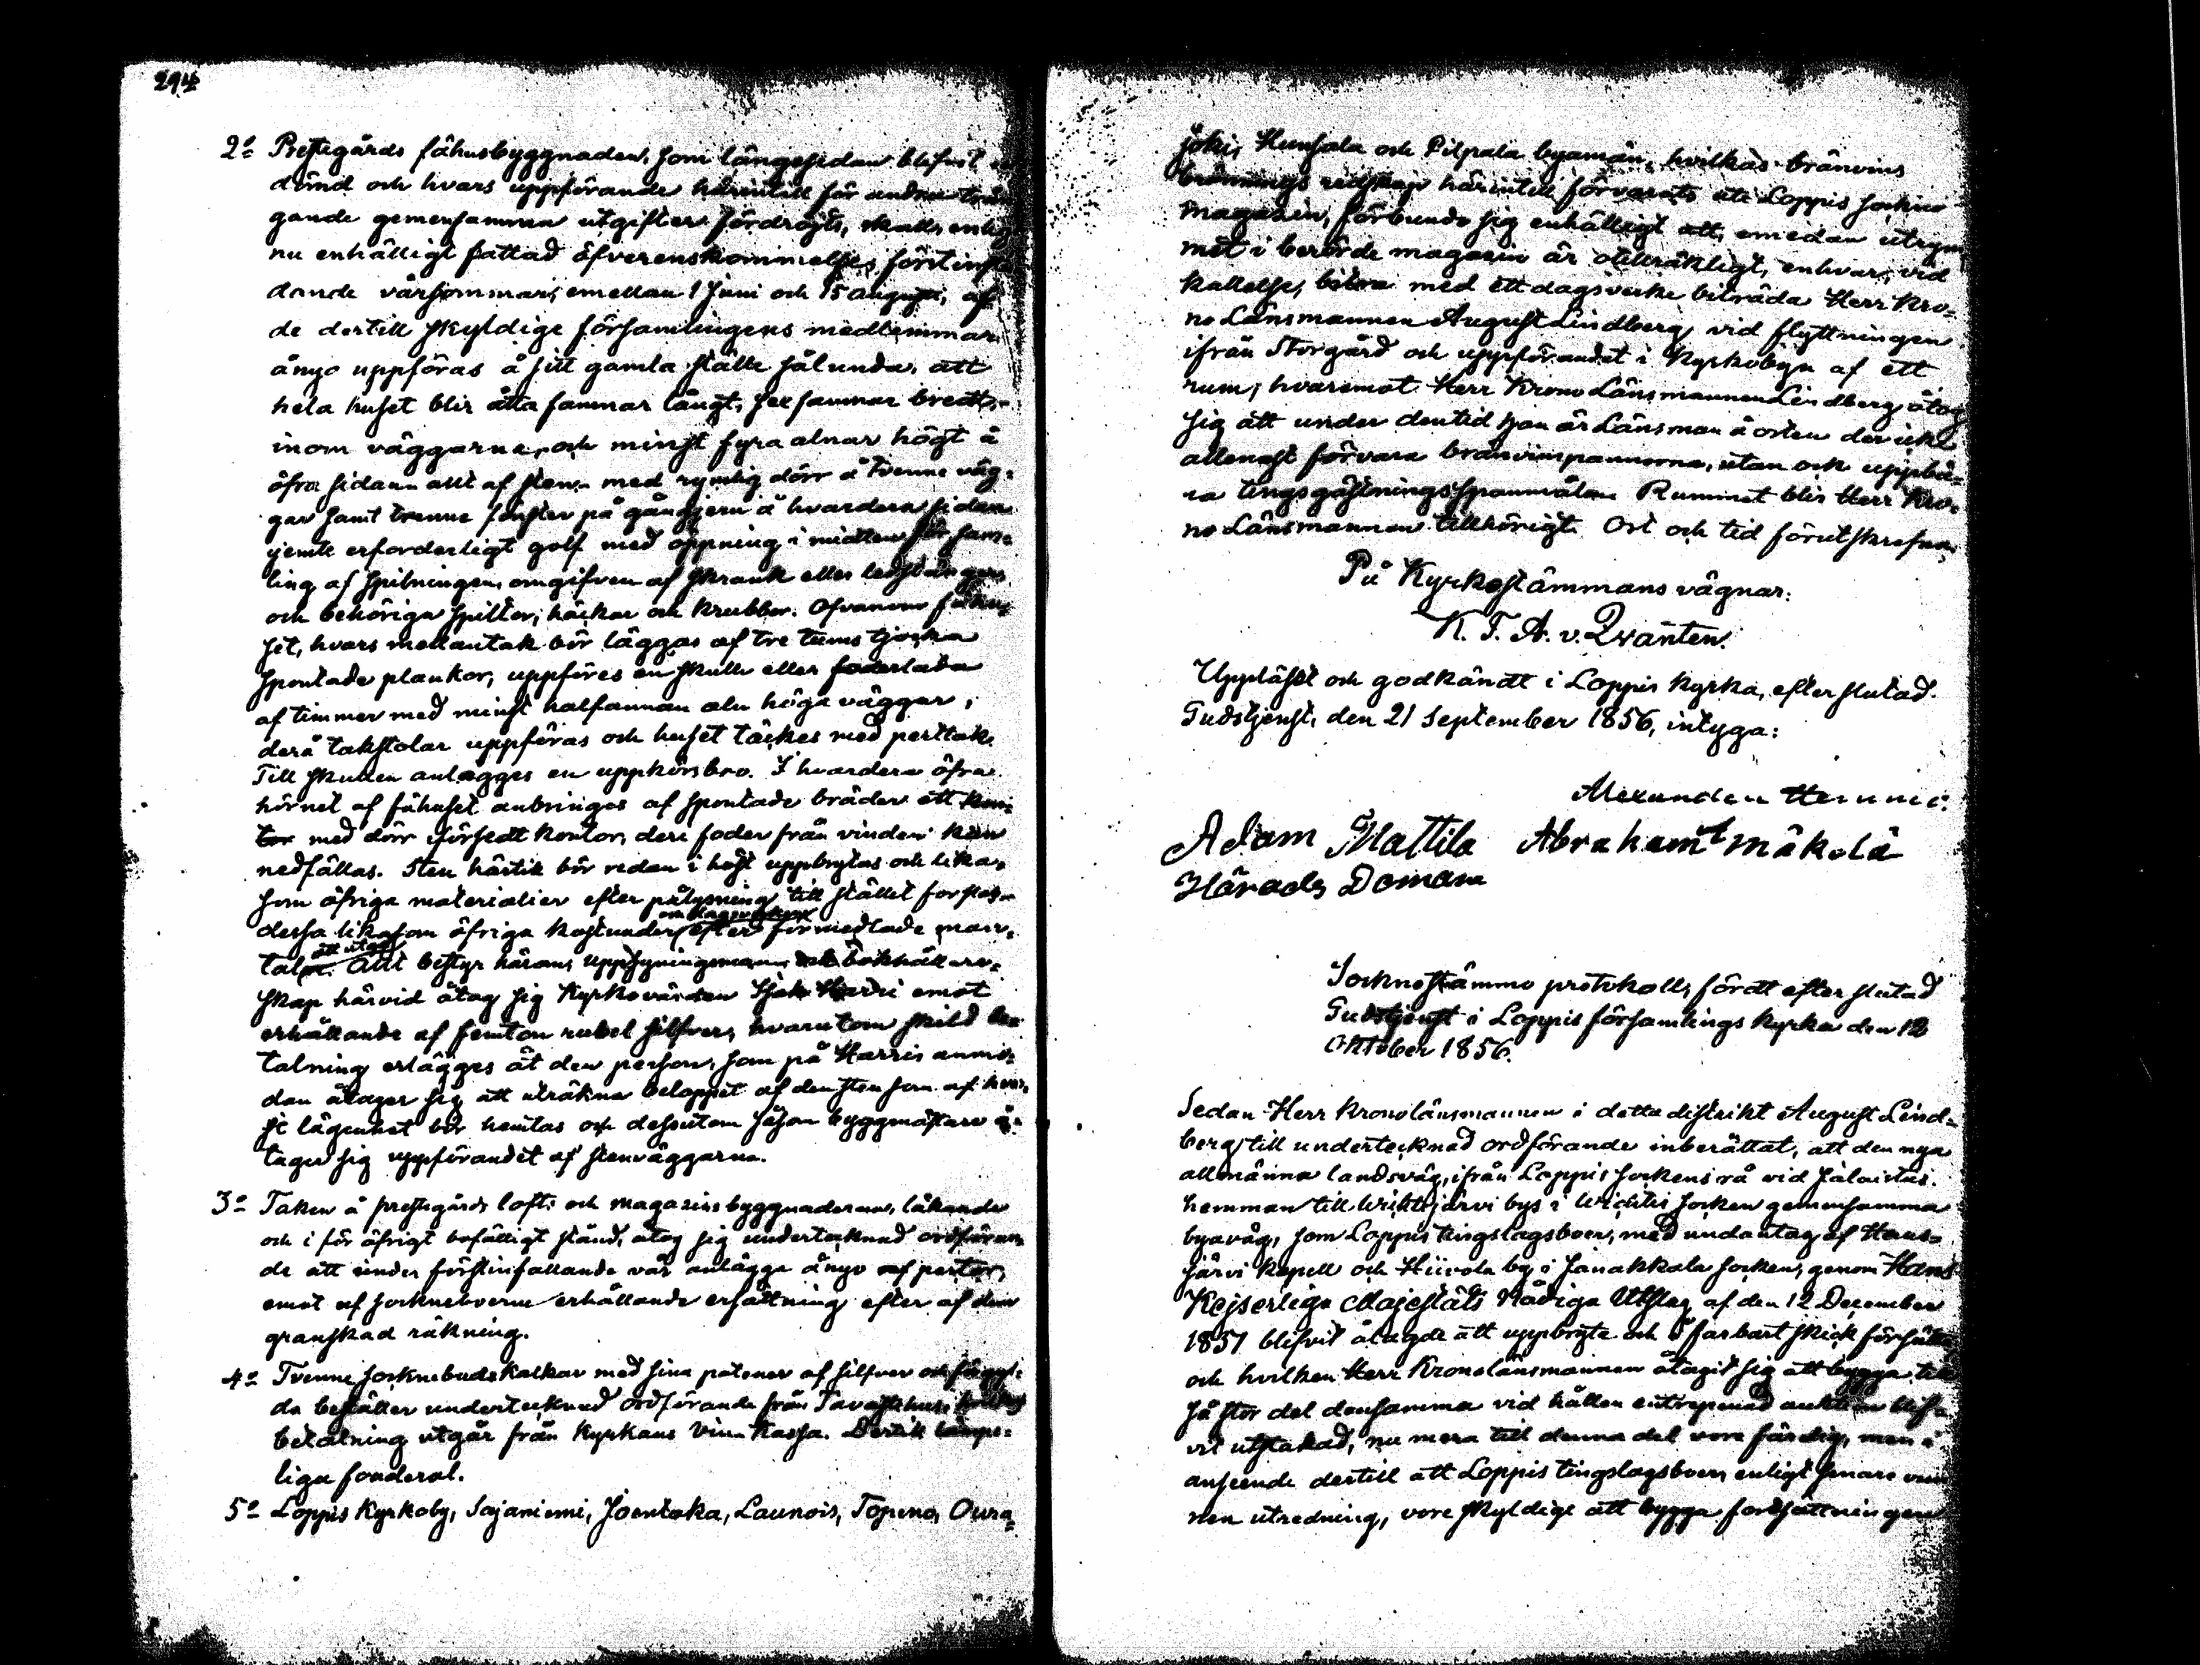 294
2o Prestegårds fähusbyggnaden, som längesedan blifvit
dömd och hvars uppförande härintill för andra trän-
gande gemensamma utgifter fördröjts, skall, enligt
nu enhälligt fattad öfverenskommelse, förstinfal-
dande vårsommar, emellan 1 Juni och 15 augusti, af
de dertill skyldige församlingens medlemmar
ånyo uppföras å sitt gamla ställe sålunda, att
hela huset blir åtta famnar långt, sex famnar bredt,
inom väggarne, och minst fyra alnar högt å
öfra sidan allt af sten, med rymlig dörr å tvenne väg-
gar samt tvenne fönster på gångjern å hvardera sidan
jemte erforderligt golf med öppning i midten för sam-
ling af spilningen, omgifven af skrank eller ledstänger
och behöriga spiltor, häckar och krubbor. Ofvanom fähu-
set, hvars mellantak bör läggas af tre tums tjocka
spontade plankor, uppföres en skulle eller foderlada
af timmer med minst halfannan aln höga väggar,
derå takstolar uppföras och huset täckes med perttak.
Till skullen anlägges en uppkörsbro. I hvardera öfra
hörnet af fähuset anbringas af spontade bräder ett kon-
tor med dörr försedt kontor, deri foder från vinden kan
nedfällas. Sten härtill bör redan i höst uppbrytas och lika-
som öfriga materialier efter pålysning till stället forslas
dessa likasom öfriga kostnader efter förmedlade man-
tal. Allt bestyr härom, uppsyningsmanna och bokhållare-
skap härvid åtog sig Kyrkovärden Isak Harri emot
erhållande af femton rubel silfver, hvarutom skild be-
talning erlägges åt den person, som på Harris anmo-
dan åtager sig att uträkna beloppet af den sten som af hvar-
je lägenhet bör hemtas och dessutom såsom byggmästare å-
tager sig uppförandet af stenväggarna.
3o Taken å prestegårds lofts och magasins byggnaderna, läkande
och i för öfrigt bofälligt stånd, åtog sig undertecknad ordföran-
de att under förstinfallande vår anlägga ånyo af pertor,
emot af socknboerne erhållande ersättning efter af dem
granskad räkning.
4o Tvenne sockenbudskalkar med sina patener af silfver och förgyl-
da beställer undertecknad ordförande från Tavastehus,
betalning utgår från Kyrkans Vin Kassa. Dertill lämpe-
liga fonderal.
5o Loppis Kyrkoby, Sajaniemi, Joentaka, Launois, Topeno, Oura-
joki, Hunsala och Pilpala byamän, hvilkas bränvins
bränings redskap härintill förvarats uti Loppis sockne
magasin, förbundo sig enhälligt att, emedan utrym-
met i berörde magasin är otillräkligt, enhvar, vid
kallelse, med ett dagsverke biträda Herr Kro-
no Länsmannen August Lindberg vid flyttningen
ifrån Storgård och uppförandet i Kyrkobyn af ett
rum, hvaremot Herr Krono Länsmannen Lindberg åtog
sig att under den tid han är Länsman å orten der icke
allenast förvara bränvinspannorna, utan ock uppbä-
ra tingsgästningsspannmålen. Rummet blir Herr Kro-
no Länsmannen tillhörigt. Ort och tid förutskrefna.
På Kyrkostämmans vägnar:
K. F. A. v. Qvanten.
Uppläst och godkändt i Loppis Kyrka, efter slutad
Gudstjenst, den 21 September 1856, intyga:
Alexander
Adam Mattila Abraham Mäkelä
Härads Domare
Socknestämmo protokoll, fördt efter slutad
Gudstjenst i Loppis församlings Kyrka den 12
Oktober 1856.
Sedan Herr Kronolänsmannen i detta distrikt August Lind-
berg till undertecknad ordförande inberättat, att den nya
allmänna landsväg, ifrån Loppis sockens rå vid Jalavistus
hemman till Wihtijärvi bys i Wichtis socken gemensamma
byaväg, som Loppis tingslagsboer, med undantag af Haus-
järvi kapell och Hiivola by i Janakkala socken, genom Hans
Kejserliga Majestäts Nådiga Utslag af den 12 December
1851 blifvit ålagde att uppbryta och i farbart skick försätta
och hvilken Herr Kronolänsmannen åtagit sig att bygga till
så stor del densamma vid hållen entreprenad auktion blif-
vit utstakad, nu mera till denna del vore färdig, men i
anseende dertill att Loppis tingslagsboer, enligt senare vun-
nen utredning, vore skyldige att bygga fortsättningen